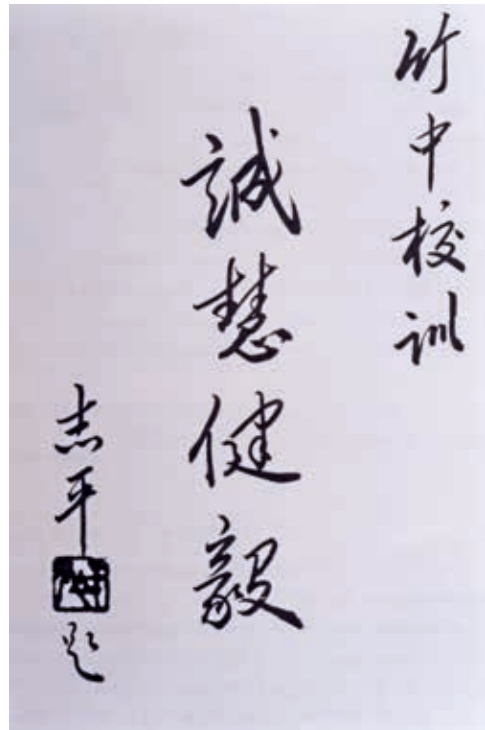 竹中校訓
誠慧健毅
志平題